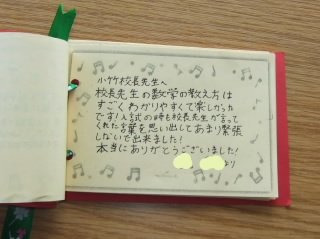 小竹校長先生へ
校長先生の数学の教え方は
すごくわかりやすくて楽しかった
です！入試の時も校長先生が言って
くれた言葉を思い出してあまり緊張
しないで出来ました！
本当にありがとうございました！
より